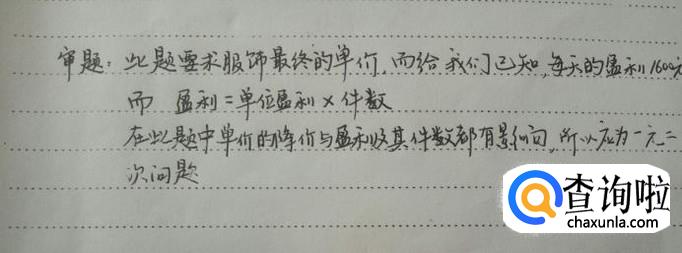 审题：此题要求服饰最终的单价，而给我们已知，每天的盈利1600元
而 盈利=单位盈利×件数
在此题中单价的降价与盈利及其件数都有影响，所以应为一元二
次问题
查询啦
chaxunla.com